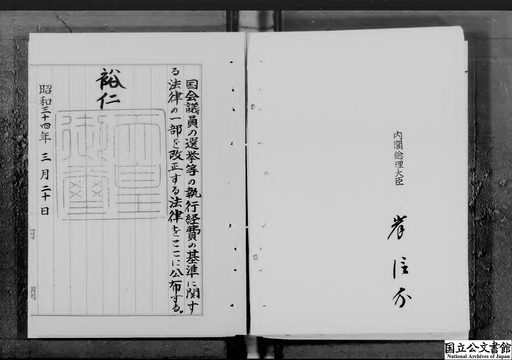 国会議員の選挙等の執行経費の基準に関す
る法律の一部を改正する法律をここに公布する。
裕仁
天皇
御璽
昭和三十四年 三月 二十日
内閣総理大臣
岸信介
国立公文書館
National Archives of Japan